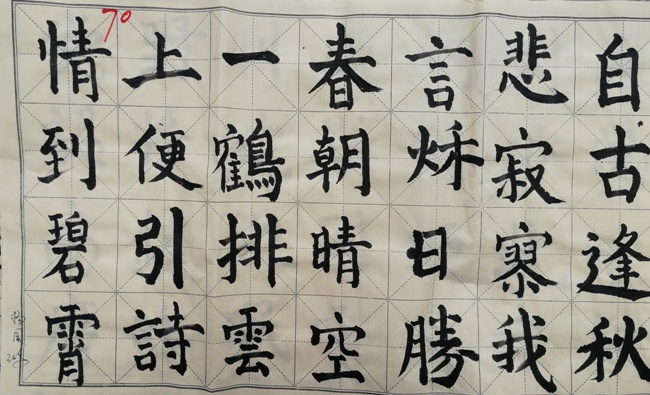 自古逢秋
悲寂寥我
言秌日勝
春朝晴空
一鶴排雲
上便引詩
情到碧霄
70